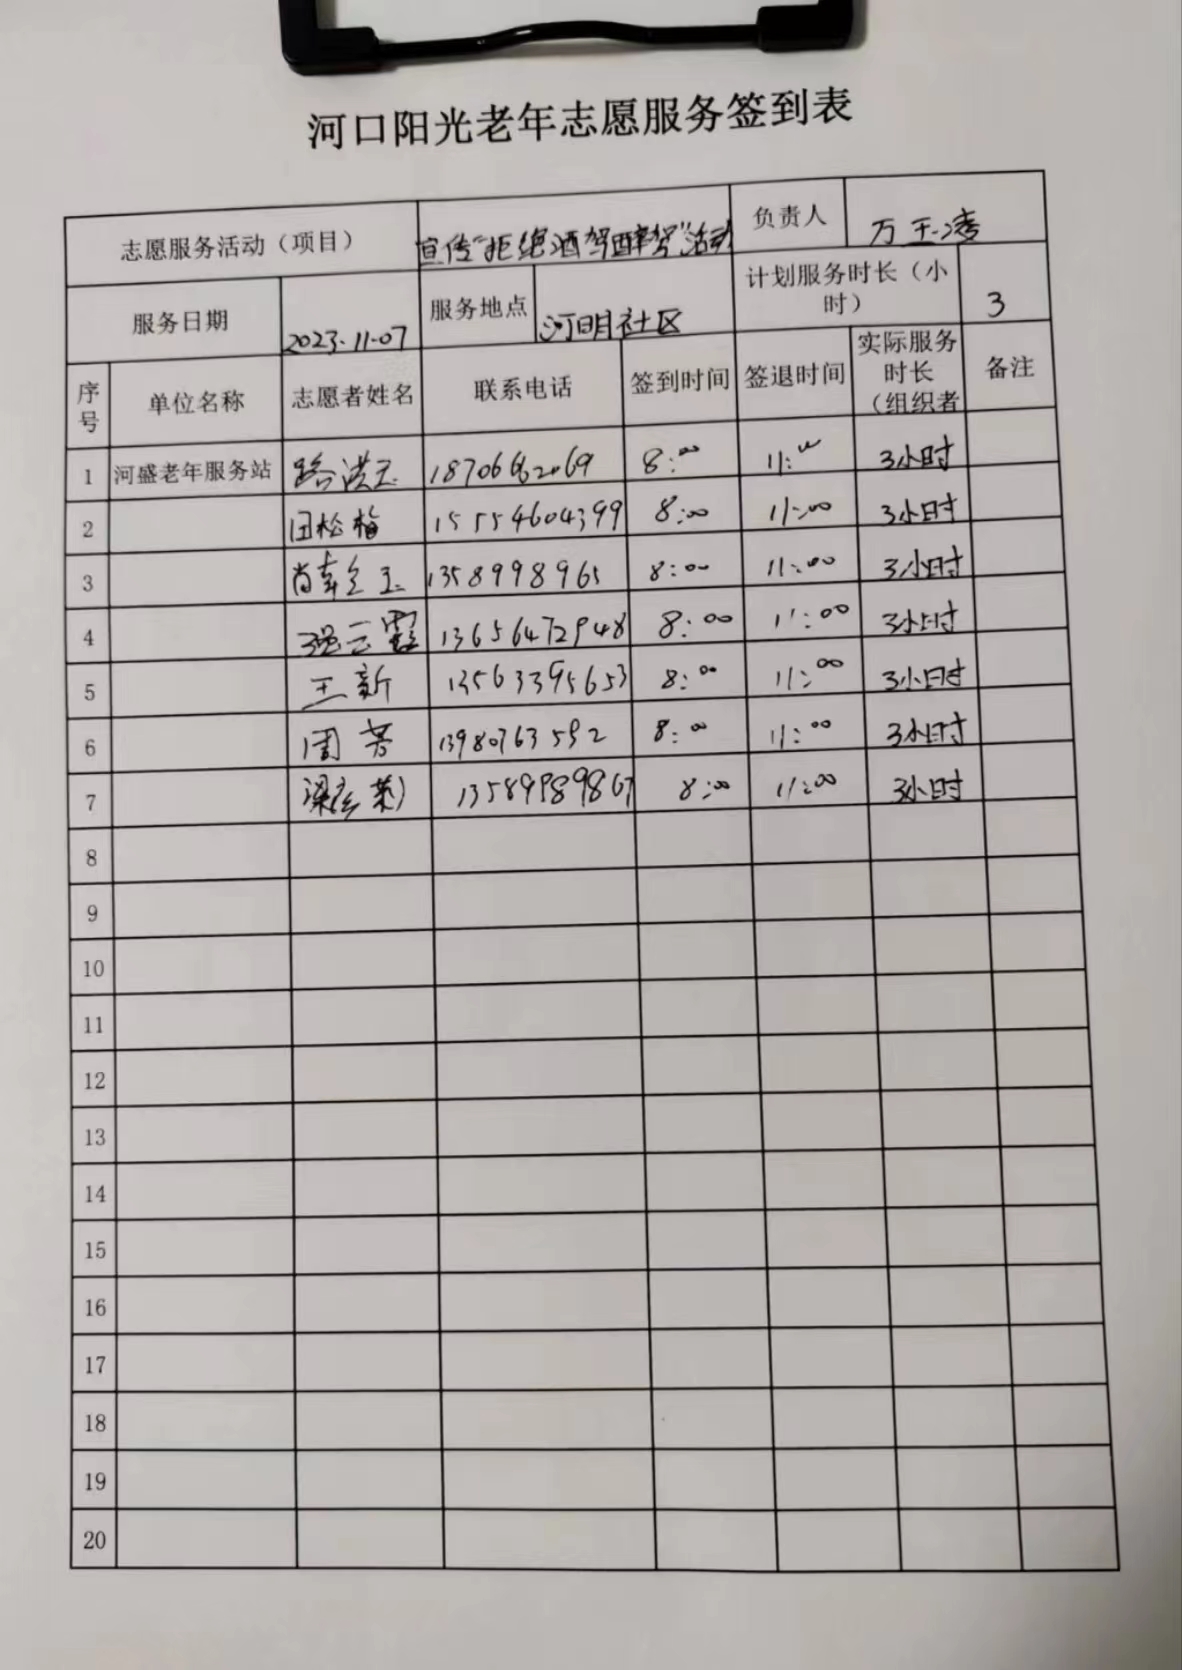 河口阳光老年志愿服务签到表
志愿服务活动（项目） 宣传"拒绝酒驾醉驾"活动 负责人 万玉凌
服务日期 2023.11.07 服务地点 河明社区 计划服务时长（小时） 3
序号 单位名称 志愿者姓名 联系电话 签到时间 签退时间 实际服务时长（组织者 备注
1 河盛老年服务站 路洪玉 8:00 11:00 3小时
2 田松梅 15554604399 8:00 11:00 3小时
3 1358998965 8:00 11:00 3小时
4 强云霞 13656472948 8:00 11:00 3小时
5 王新 13563395653 8:00 11:00 3小时
6 周芳 13980763592 8:00 11:00 3小时
7 13589989867 8:00 11:00 3小时
8
9
10
11
12
13
14
15
16
17
18
19
20